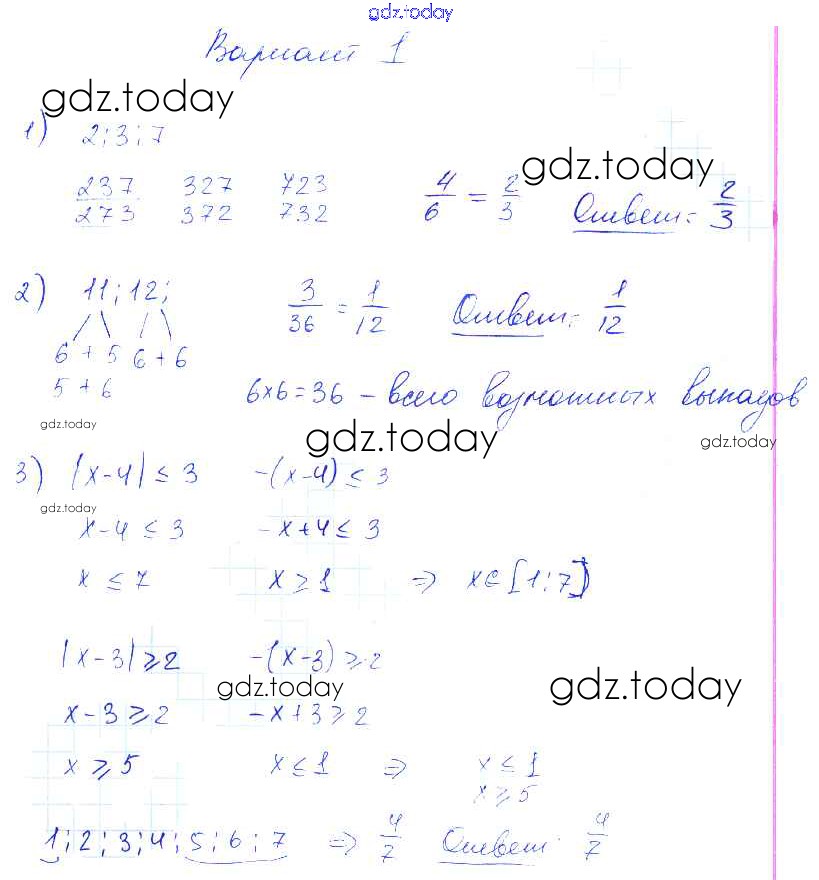 gdz.today
Вариант 1
gdz.today
1) 2; 3; 7
gdz.today
237 327 723
273 372 732
4/6 = 2/3 Ответ: 2/3
2) 11; 12;
6 + 5 6 + 6
5 + 6
3/36 = 1/12 Ответ: 1/12
6x6=36 – всего возможных выпадов
gdz.today
gdz.today
gdz.today
3) |x-4| ≤ 3 -(x-4) ≤ 3
gdz.today
x-4 ≤ 3 -x+4 ≤ 3
x ≤ 7 x ≥ 1 => x∈[1;7]
|x-3| ≥ 2 -(x-3) ≥ 2
gdz.today
gdz.today
x-3 ≥ 2 -x+3 ≥ 2
x ≥ 5 x ≤ 1 => x ≤ 1
x ≥ 5
1; 2; 3; 4; 5; 6; 7 => 4/7 Ответ: 4/7